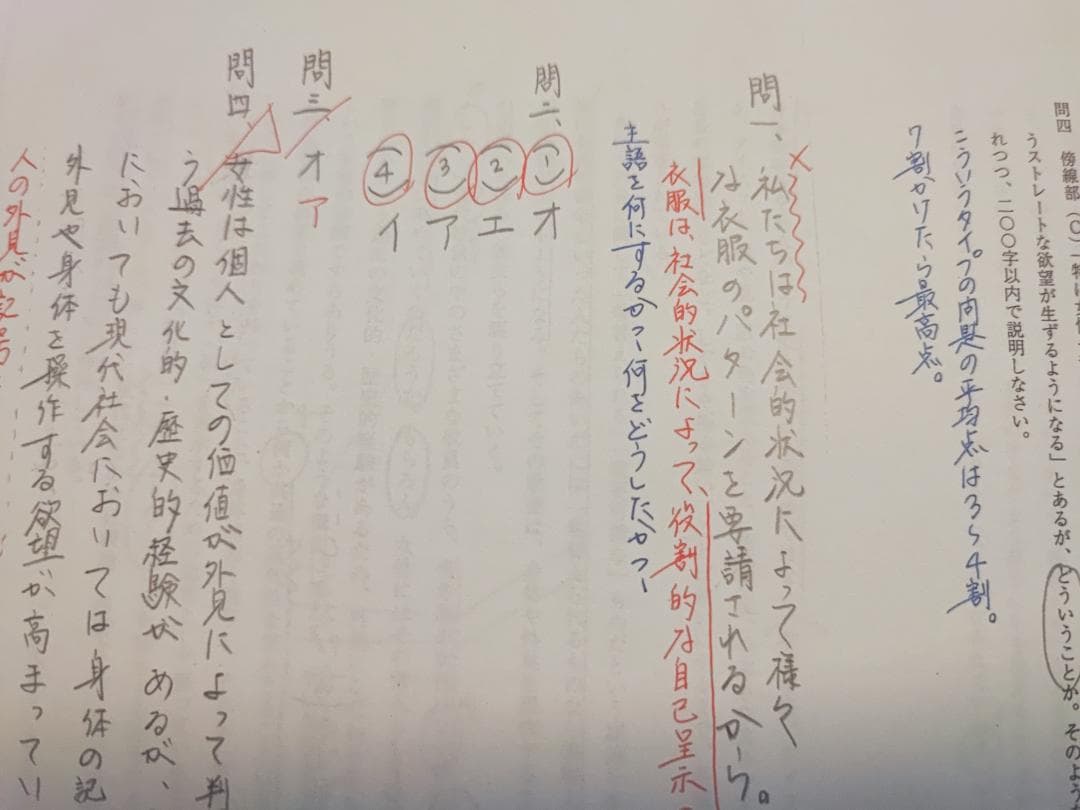 問四 傍線部(C)「特に
うストレートな欲望が生ずるようになる」とあるが、どういうことか。そのよう
れつつ、二〇〇字以内で説明しなさい。
こういうタイプの問題の平均点は3~4割。
7割かけたら最高点。
問一、私たちは社会的状況によって様々
な衣服のパターンを要請されるから。
衣服は、社会的状況によって、役割的な自己呈示
主語を何にするか? 何をどうしたか?
問二、① オ
② エ
③ ア
④ イ
問三、オ ア
問四、女性は個人としての価値が外見によって判
う過去の文化的・歴史的経験があるが、
においても現代社会においては身体の記
外見や身体を操作する欲望が高まってい
人の外見が記号